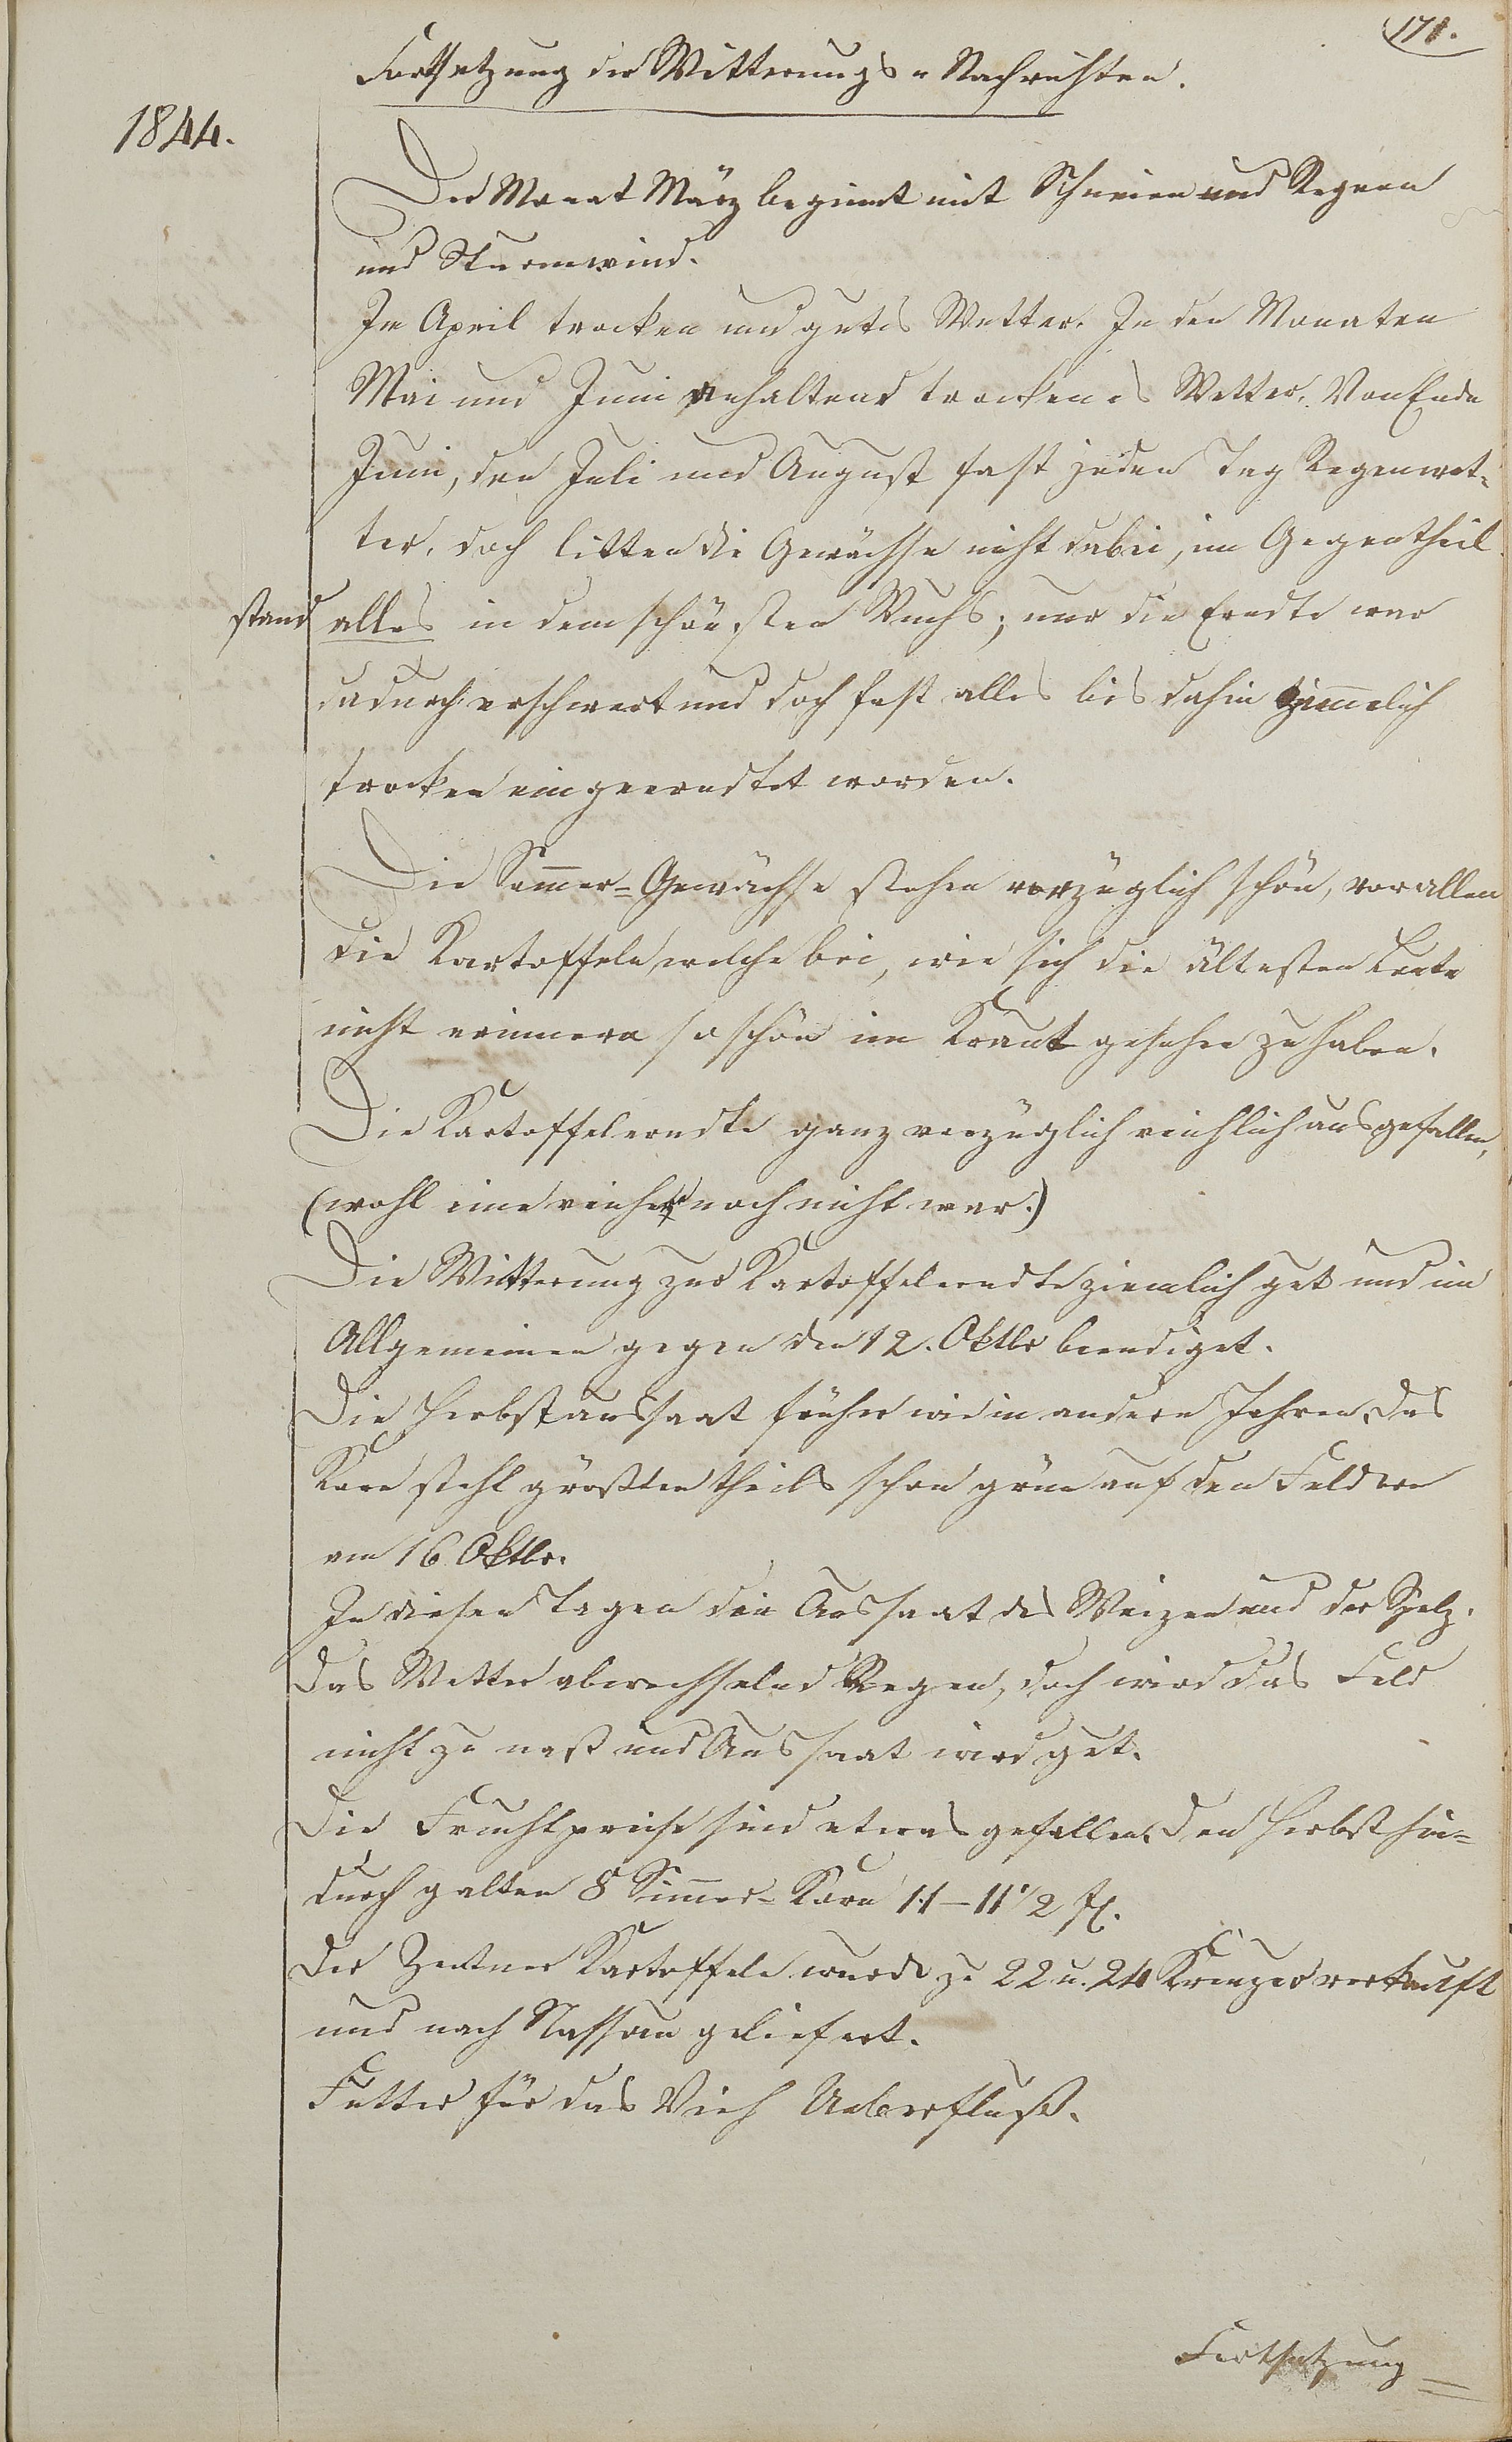 171.
Fortsetzung der Witterungs-Nachrichten.
1844.
Der Monat März beginnt mit Schneien und Regnen
und Sturmwind.
Im April trocken und gutes Wetter. In den Monaten
Mai und Juni anhaltend trockenes Wetter. Von Ende
Juni, den Juli und August fast jeden Tag Regenwet-
ter, doch litten die Gewächse nicht dabei, im Gegentheil
stand alles in dem schönsten Wuchs; nur die Erndte war
dadurch erschwert und doch fast alles bis dahin ziemlich
trocken eingeerndtet worden.
Die Sommer-Gewächse stehen vorzüglich schön, vor allen
die Kartoffeln, welche bei, wie sich die ältesten Leute
nicht erinnern so schön im Kraut gesehen zu haben.
Die Kartoffelerndte ganz vorzüglich reichlich ausgefallen,
(wohl eine reiche noch nicht war.)
Die Witterung zur Kartoffelerndte ziemlich gut und im
Allgemeinen gegen den 12. Oktbr beendiget.
Die Herbstaussaat früher wie in andern Jahren, das
Korn steht größtentheils schon grün auf den Feldern
am 16 Oktbr.
In diesen Tagen die Aussaat des Weizen und der Spelz.
Das Wetter abwechselnd Regen, doch wird das Feld
nicht zu naß und Aussaat wird gut.
Die Fruchtpreise sind etwas gefallen. Den Herbst hin-
durch galten 8 Simmer-Korn 11-11 1/2 fl.
Der Zentner Kartoffeln wurde zu 22 u. 24 Kreuzer verkauft
und nach Nassau geliefert.
Futter für das Vieh Ueberfluß.
Fortsetzung